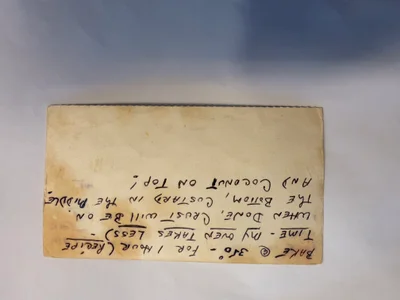 BAKE @ 350° - FOR 1 HOUR (RECIPE
TIME - MY OVEN TAKES LESS) -
WHEN DONE, CRUST WILL BE ON
THE BOTTOM, CUSTARD IN THE MIDDLE
AND COCONUT ON TOP!